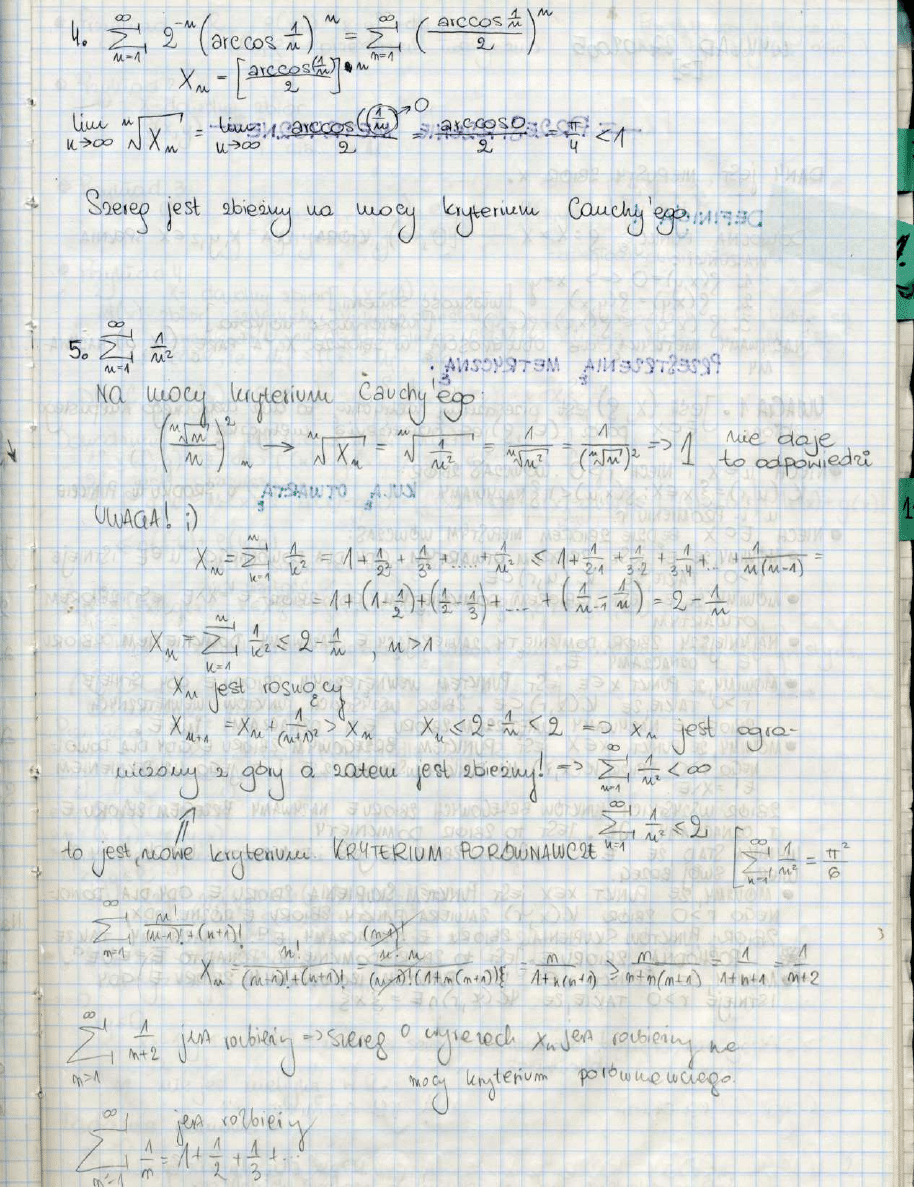 4. ∑_{n=1}^{∞} 2^{-n} (arccos 1/n)^n = ∑_{n=1}^{∞} (arccos 1/n / 2)^n
X_n = [arccos(1/n) / 2]^n
lim_{n→∞} ⁿ√X_n = lim_{n→∞} arccos(1/n) →0 / 2 = arccos 0 / 2 = π/4 < 1
Szereg jest zbieżny na mocy kryterium Cauchy'ego
5. ∑_{n=1}^{∞} 1/n²
NA mocy kryterium Cauchy'ego
(ⁿ√n / n)²_n → ⁿ√X_n = ⁿ√(1/n²) = 1/ⁿ√n² = 1/(ⁿ√n)² => 1 nie daje
to odpowiedzi
UWAGA! ;)
X_n = ∑_{k=1}^{n} 1/k² = 1 + 1/2² + 1/3² + ..... + 1/n² ≤ 1 + 1/2·1 + 1/3·2 + 1/3·4 + ... + 1/n(n-1) =
= 1 + (1 - 1/2) + (1/2 - 1/3) + .... + (1/n-1 - 1/n) = 2 - 1/n
X_n = ∑_{k=1}^{n} 1/k² ≤ 2 - 1/n , n > 1
X_n jest rosnący
X_{n+1} = X_n + 1/(n+1)² > X_n X_n ≤ 2 - 1/n < 2 => x_n jest ogra-
niczony z góry a zatem jest zbieżny! => ∑_{n=1}^{∞} 1/n² < ∞
∑_{n=1}^{∞} 1/n² ≤ 2
to jest nowe kryterium KRYTERIUM PORÓWNAWCZE [∑_{n=1}^{∞} 1/n² = π²/6
∑_{n=1}^{∞} n!/(n-1)!+(n+1)!
X_n = n!/(n-1)!+(n+1)! = (n-1)! n/(n-1)!(1+n(n+1)) = n/1+n(n+1) ≥ n/n+n(n+1) = 1/1+n+1 = 1/n+2
∑_{n=1}^{∞} 1/n+2 jest rozbieżny => szereg o wyrazach x_n jest rozbieżny na
mocy kryterium porównawczego.
jest rozbieżny
∑_{n=1}^{∞} 1/n = 1 + 1/2 + 1/3 + ...